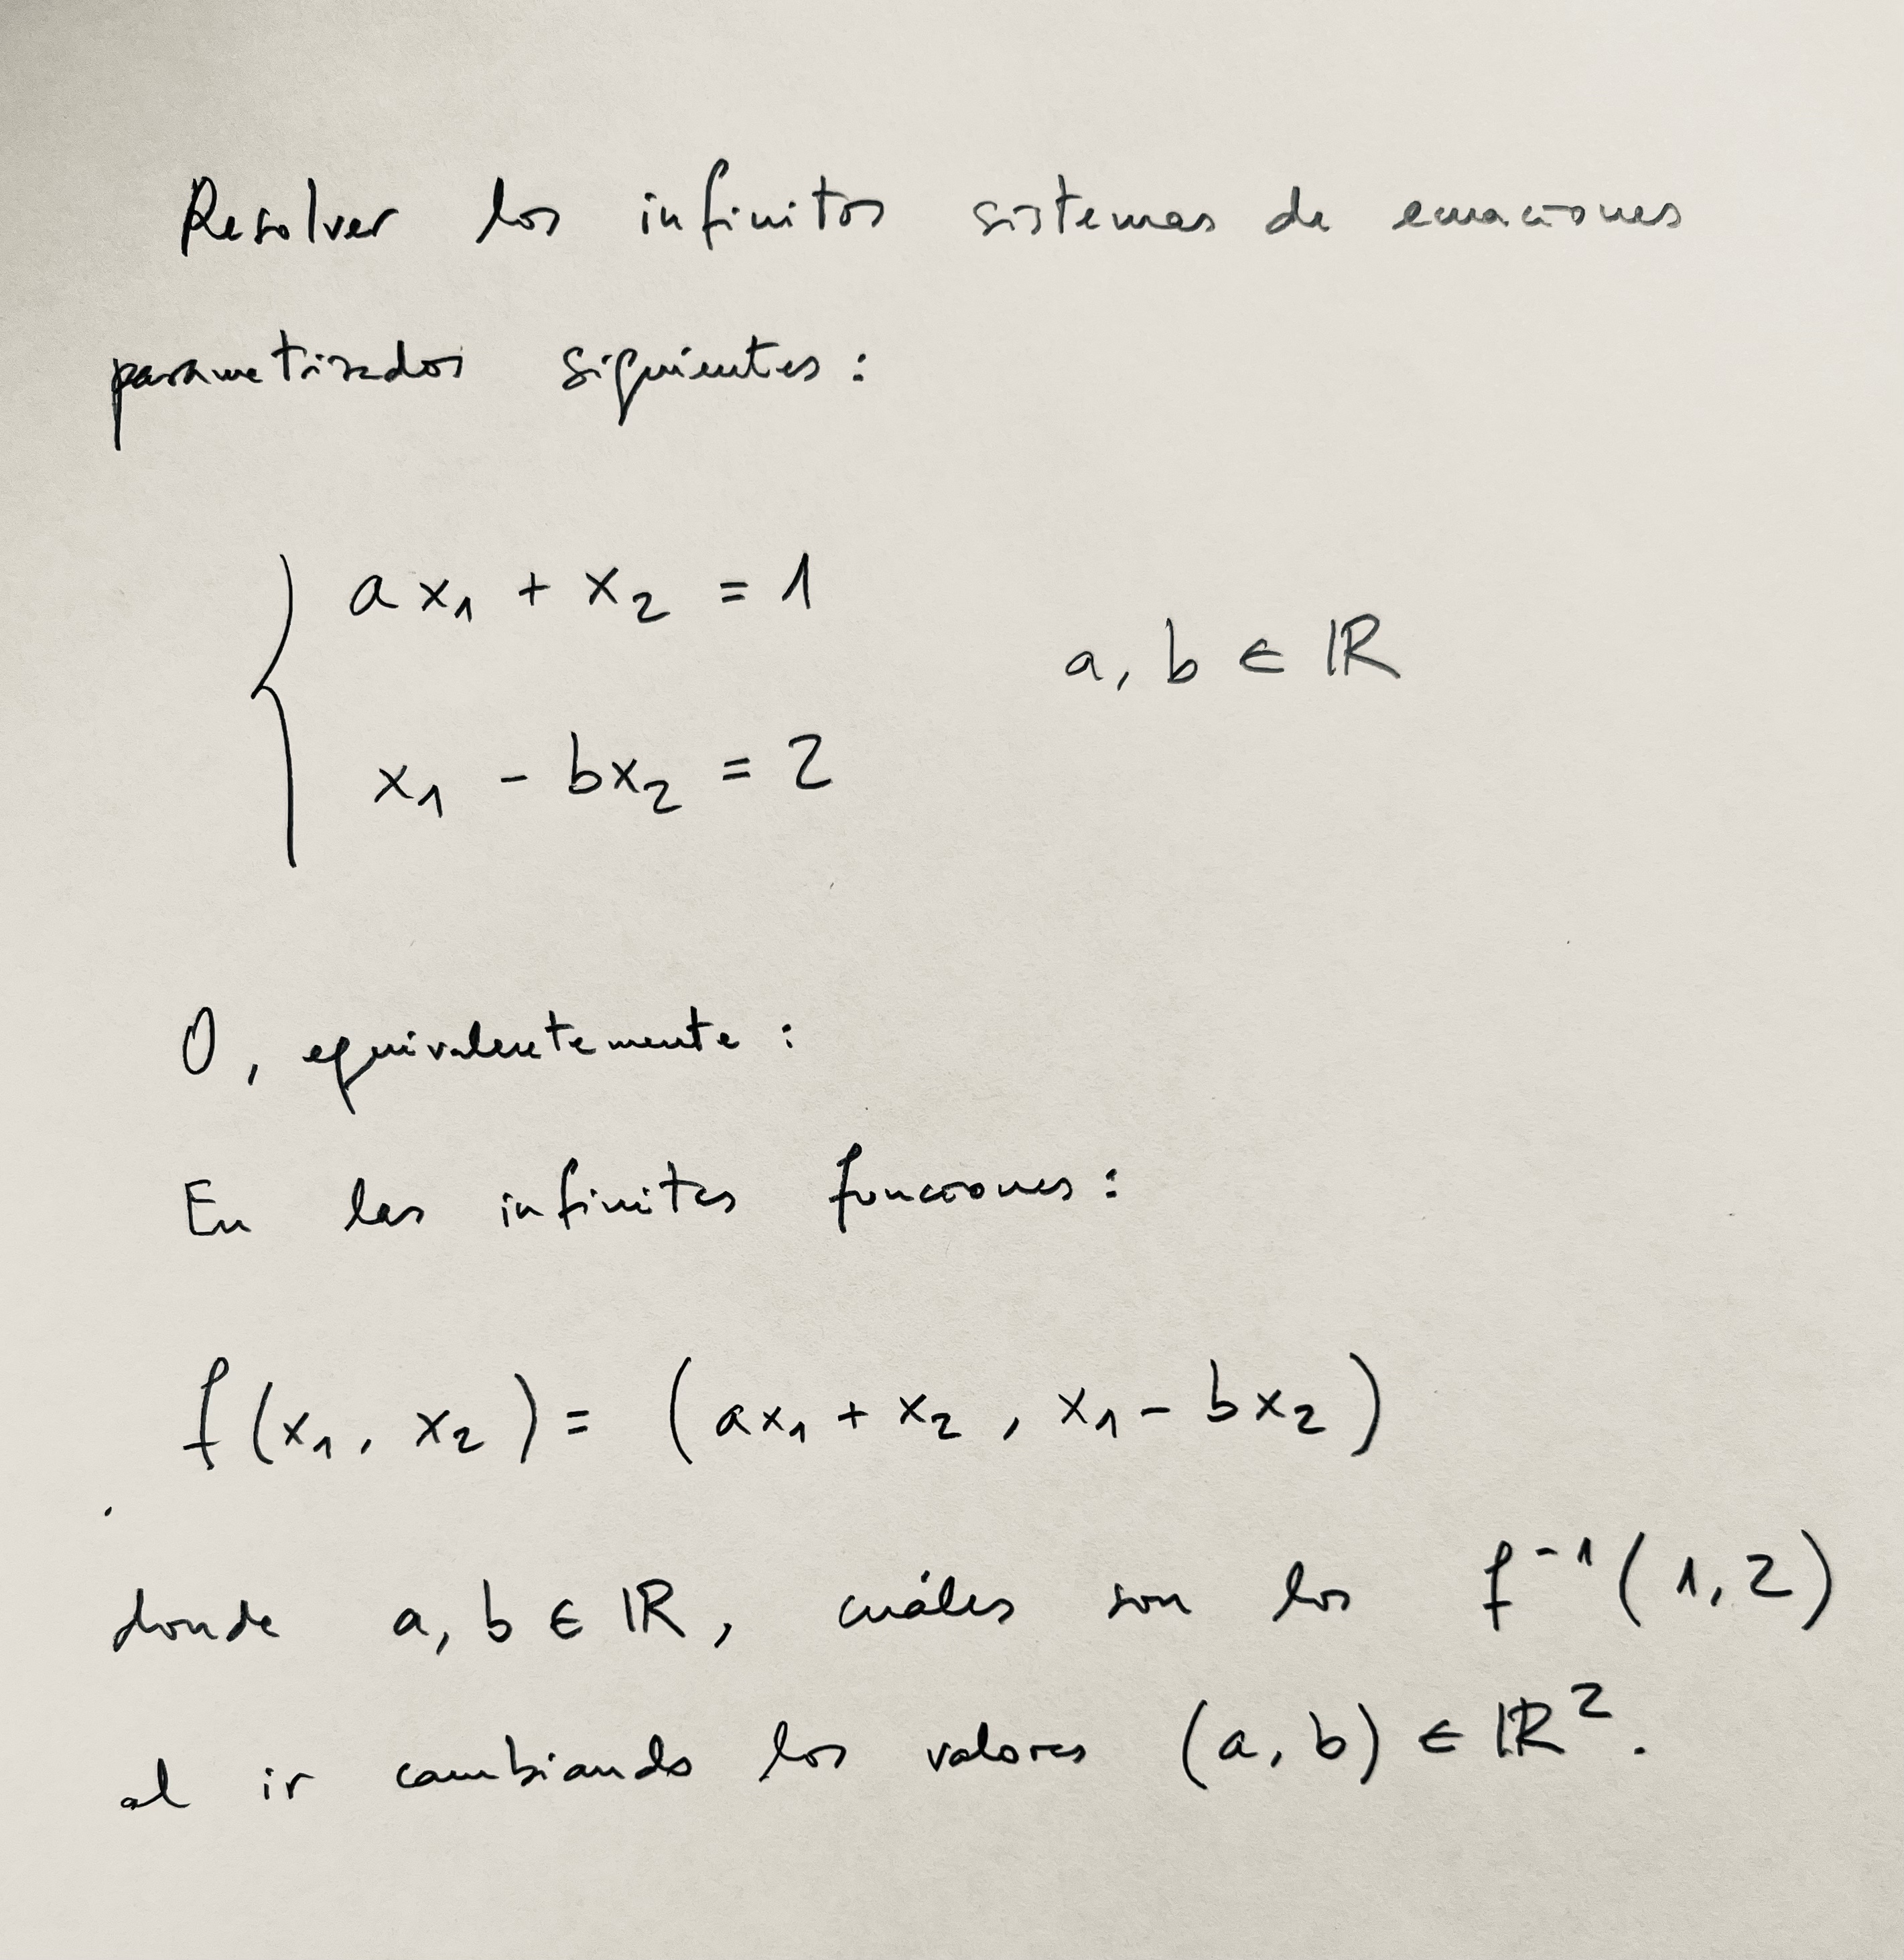 Resolver los infinitos sistemas de ecuaciones
parametrizados siguientes:
ax₁ + x₂ = 1
a, b ∈ ℝ
x₁ - bx₂ = 2
O, equivalentemente:
En las infinitas funciones:
f(x₁, x₂) = (ax₁ + x₂, x₁ - bx₂)
donde a, b ∈ ℝ, cuáles son los f⁻¹(1,2)
al ir cambiando los valores (a, b) ∈ ℝ².